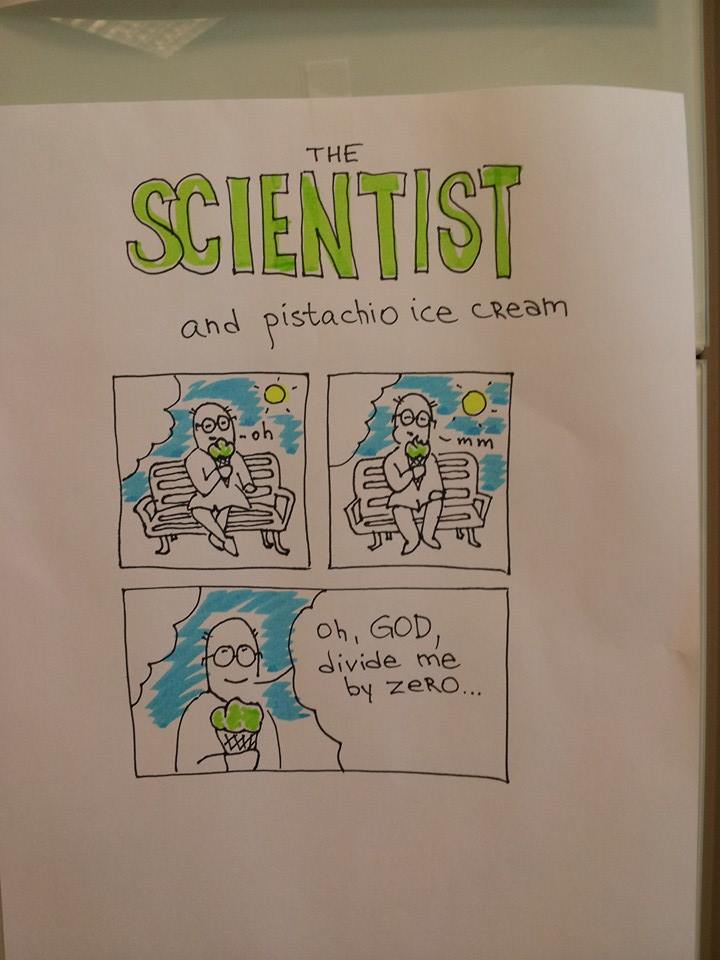 THE
SCIENTIST
and pistachio ice cream
-oh
~mm
oh, GOD,
divide me
by zeRO...